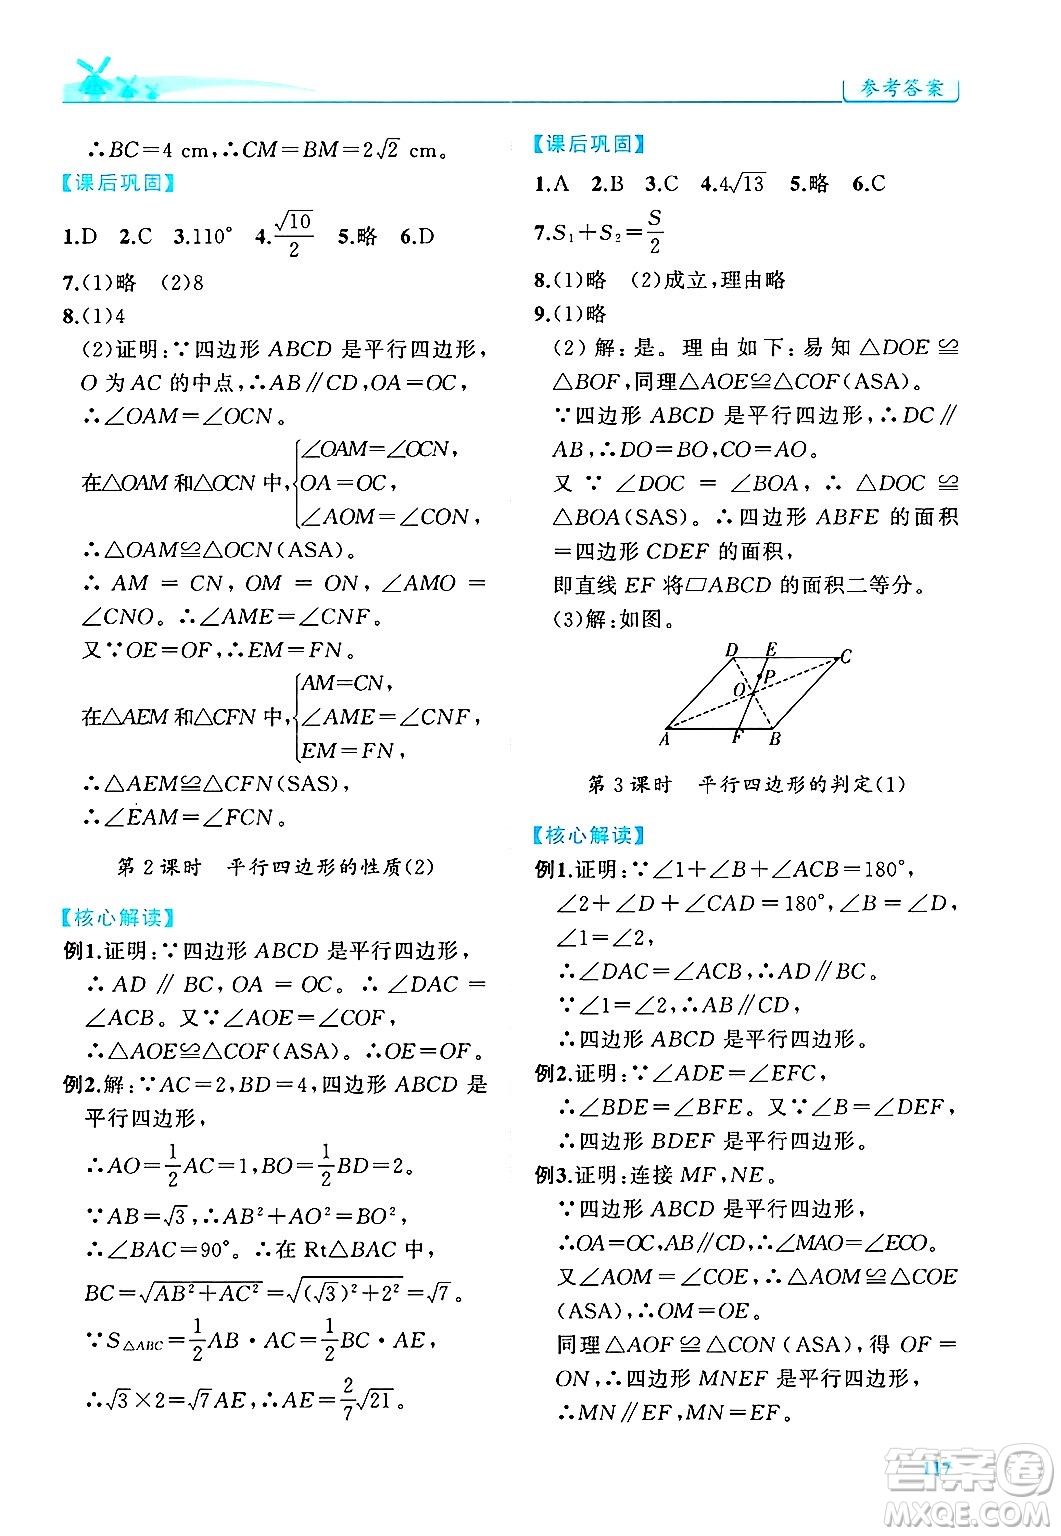 参考答案
∴BC=4 cm,∴CM=BM=2√2 cm。
【课后巩固】
1.D 2.C 3.110° 4.√10/2 5.略 6.D
7.(1)略 (2)8
8.(1)4
(2)证明:∵四边形 ABCD 是平行四边形,
O 为 AC 的中点,∴AB∥CD,OA=OC,
∴∠OAM=∠OCN。
∠OAM=∠OCN,
在△OAM 和△OCN 中,{OA=OC,
∠AOM=∠CON,
∴△OAM≌△OCN(ASA)。
∴ AM = CN, OM = ON, ∠AMO =
∠CNO。∴∠AME=∠CNF。
又∵OE=OF,∴EM=FN。
AM=CN,
在△AEM 和△CFN 中,{∠AME=∠CNF,
EM=FN,
∴△AEM≌△CFN(SAS),
∴∠EAM=∠FCN。
第 2 课时 平行四边形的性质(2)
【核心解读】
例1.证明:∵四边形 ABCD 是平行四边形,
∴ AD ∥ BC, OA = OC。∴ ∠DAC =
∠ACB。又∵∠AOE=∠COF,
∴△AOE≌△COF(ASA)。∴OE=OF。
例2.解:∵AC=2,BD=4,四边形 ABCD 是
平行四边形,
∴AO=1/2AC=1,BO=1/2BD=2。
∵AB=√3,∴AB²+AO²=BO²,
∴∠BAC=90°。∴在 Rt△BAC 中,
BC=√(AB²+AC²)=√((√3)²+2²)=√7。
∵S△ABC=1/2AB·AC=1/2BC·AE,
∴√3×2=√7AE,∴AE=2/7√21。
【课后巩固】
1.A 2.B 3.C 4.4√13 5.略 6.C
7.S₁+S₂=S/2
8.(1)略 (2)成立,理由略
9.(1)略
(2)解:是。理由如下:易知△DOE≌
△BOF,同理△AOE≌△COF(ASA)。
∵四边形 ABCD 是平行四边形,∴DC∥
AB,∴DO=BO,CO=AO。
又 ∵ ∠DOC = ∠BOA, ∴ △DOC ≌
△BOA(SAS)。∴四边形 ABFE 的面积
=四边形 CDEF 的面积,
即直线 EF 将▱ABCD 的面积二等分。
(3)解:如图。
D E C
P
O
A F B
第 3 课时 平行四边形的判定(1)
【核心解读】
例1.证明:∵∠1+∠B+∠ACB=180°,
∠2+∠D+∠CAD=180°,∠B=∠D,
∠1=∠2,
∴∠DAC=∠ACB,∴AD∥BC。
∵∠1=∠2,∴AB∥CD,
∴四边形 ABCD 是平行四边形。
例2.证明:∵∠ADE=∠EFC,
∴∠BDE=∠BFE。又∵∠B=∠DEF,
∴四边形 BDEF 是平行四边形。
例3.证明:连接 MF,NE。
∵四边形 ABCD 是平行四边形,
∴OA=OC,AB∥CD,∴∠MAO=∠ECO。
又∠AOM=∠COE,∴△AOM≌△COE
(ASA),∴OM=OE。
同理△AOF≌△CON(ASA),得 OF=
ON,∴四边形 MNEF 是平行四边形,
∴MN∥EF,MN=EF。
117
答案圈
MXQE.COM